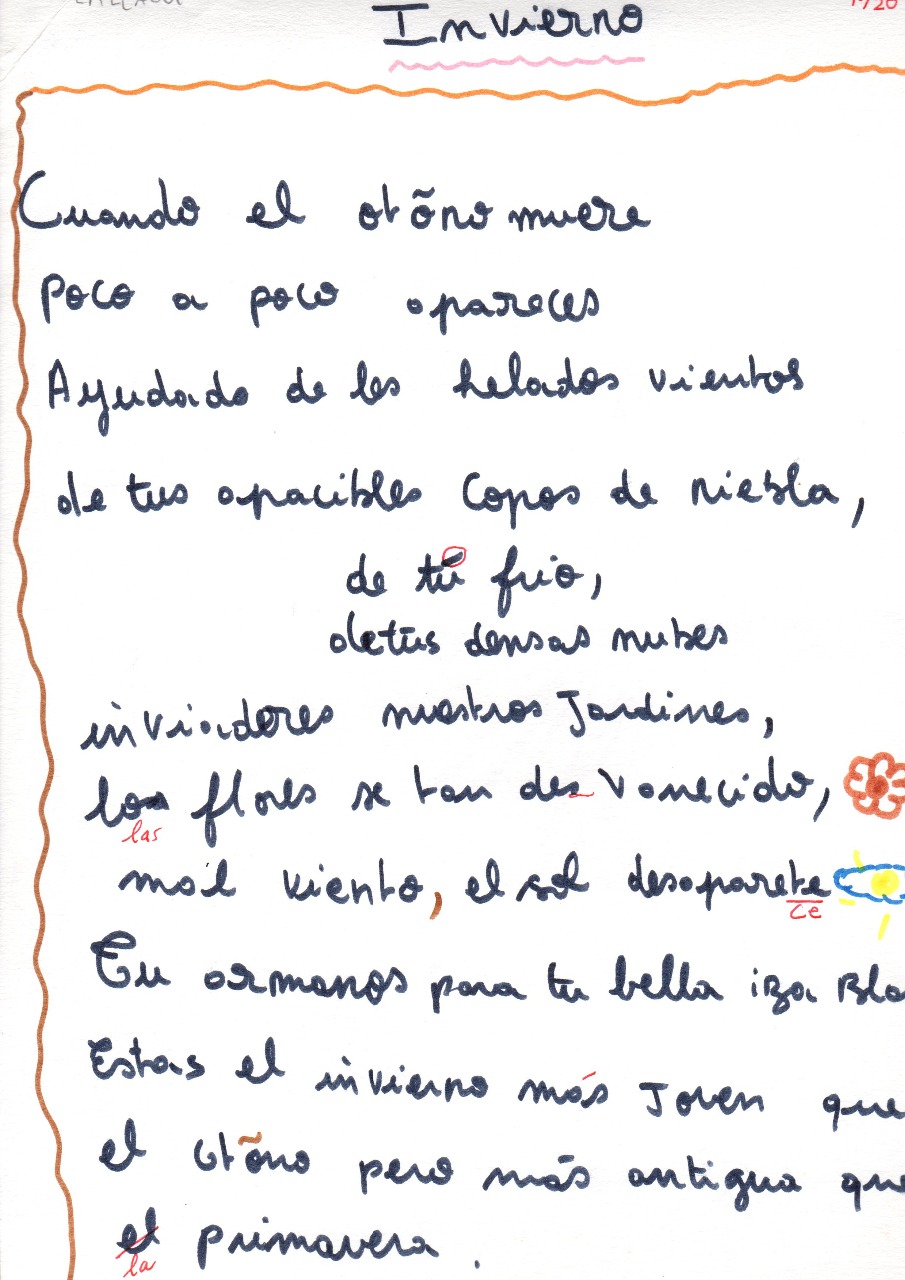 Invierno
Cuando el otõno muere
Poco a poco apareces
Ayudado de los helados vientos
de tus apacibles Copos de niebla,
de tú frio,
de tus densas nubes
inviaderes nuestros Jardines,
los flores se tan des vanecido,
las
mal viento, el sol desaparete
ce
Tu armanos para tu bella iza Bla
Estas el invierno más Joven que
el otõno pero más antigua que
el primavera.
la